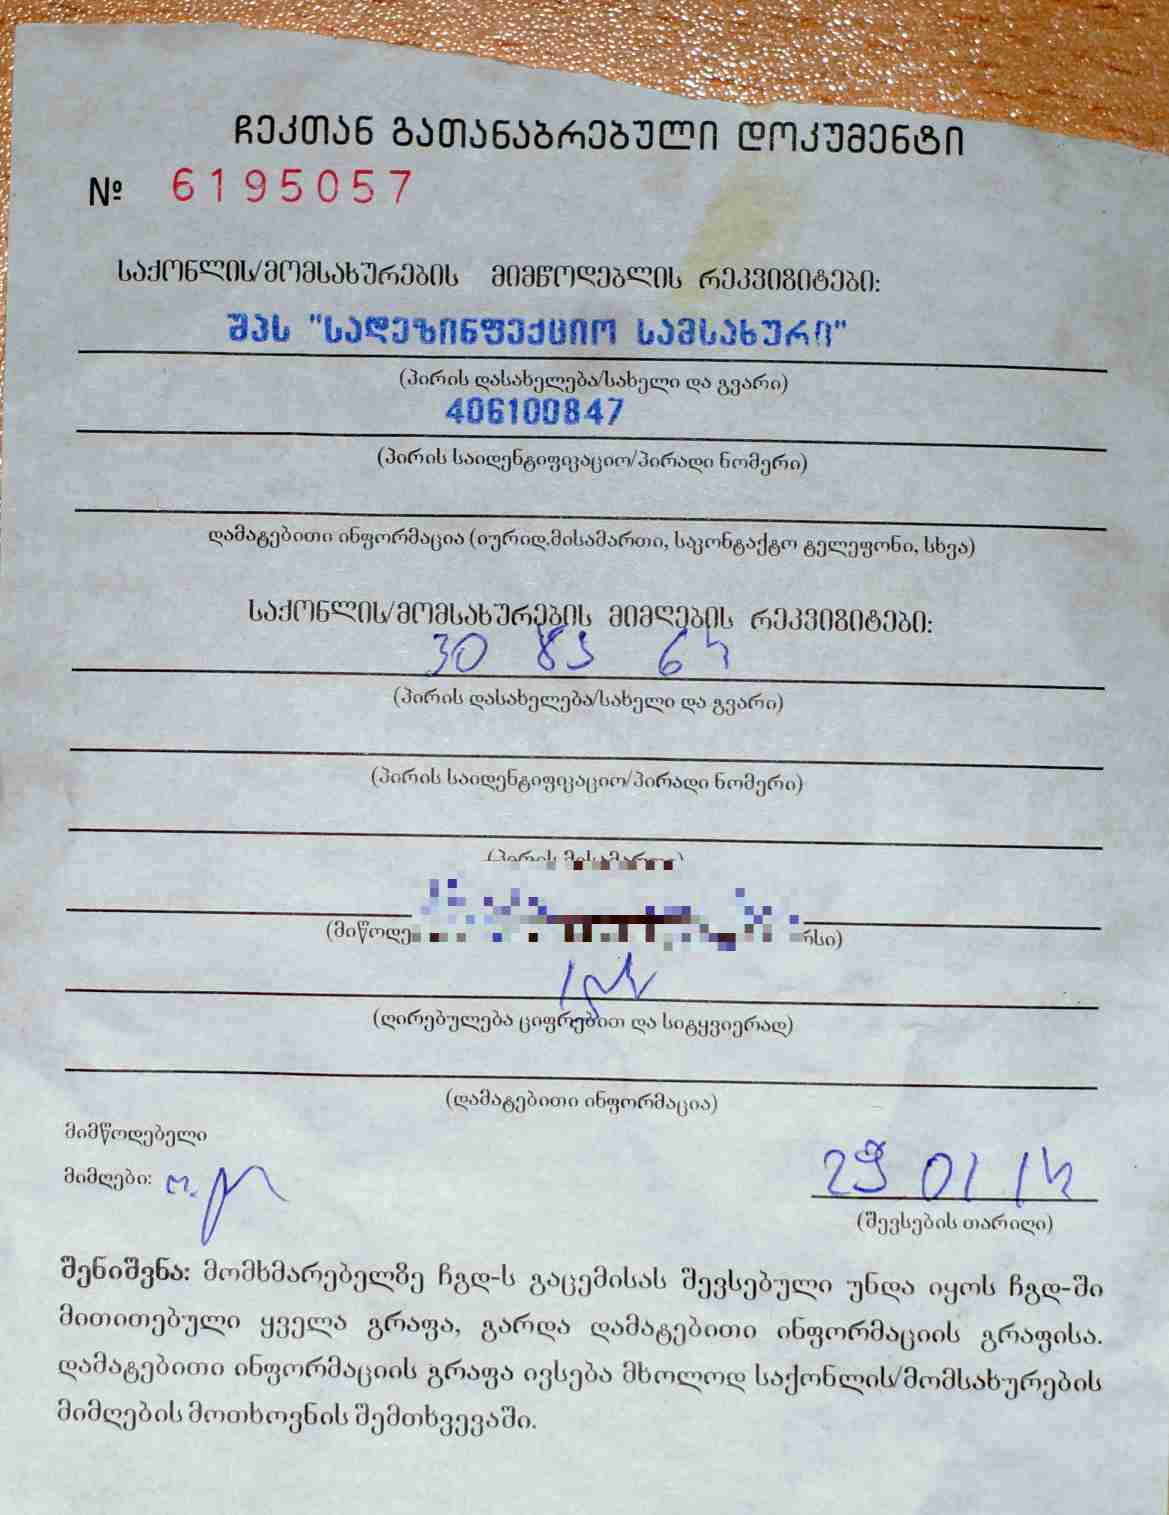 ჩეკთან გათანაბრებული დოკუმენტი
№ 6195057
საქონლის/მომსახურების მიმწოდებლის რეკვიზიტები:
შპს "სადეზინფექციო სამსახური"
(პირის დასახელება/სახელი და გვარი)
406100847
(პირის საიდენტიფიკაციო/პირადი ნომერი)
დამატებითი ინფორმაცია (იურიდ.მისამართი, საკონტაქტო ტელეფონი, სხვა)
საქონლის/მომსახურების მიმღების რეკვიზიტები:
30 83 64
(პირის დასახელება/სახელი და გვარი)
(პირის საიდენტიფიკაციო/პირადი ნომერი)
(პირის მისამართი)
(ღირებულება ციფრებით და სიტყვიერად)
(დამატებითი ინფორმაცია)
მიმწოდებელი
მიმღები:
29 01 14
(შევსების თარიღი)
შენიშვნა: მომხმარებელზე ჩგდ-ს გაცემისას შევსებული უნდა იყოს ჩგდ-ში
მითითებული ყველა გრაფა, გარდა დამატებითი ინფორმაციის გრაფისა.
დამატებითი ინფორმაციის გრაფა ივსება მხოლოდ საქონლის/მომსახურების
მიმღების მოთხოვნის შემთხვევაში.